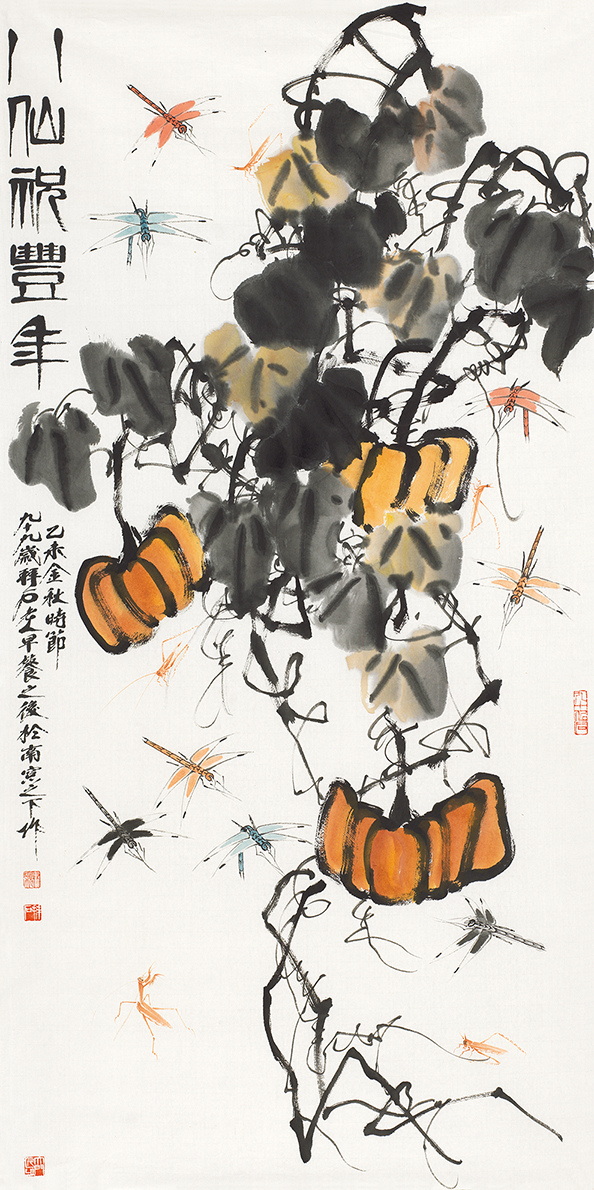 八仙祝豐年
乙未金秋時節
九十九歲拜石老人早餐之後於南窗之下作